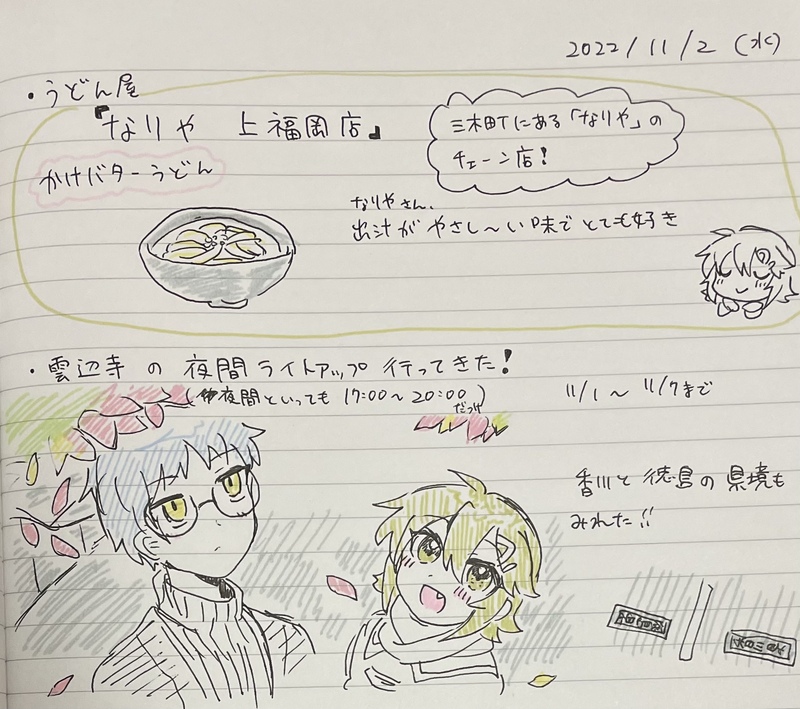 2022/11/2 (水)
・うどん屋
『なりや 上福岡店』
三木町にある「なりや」の
チェーン店!
かけバターうどん
なりやさん、
出汁がやさし〜い味でとても好き
・雲辺寺の夜間ライトアップ行ってきた!
(夜間といっても 17:00〜20:00)
だっけ
11/1〜11/7まで
香川と徳島の県境も
みれた!!